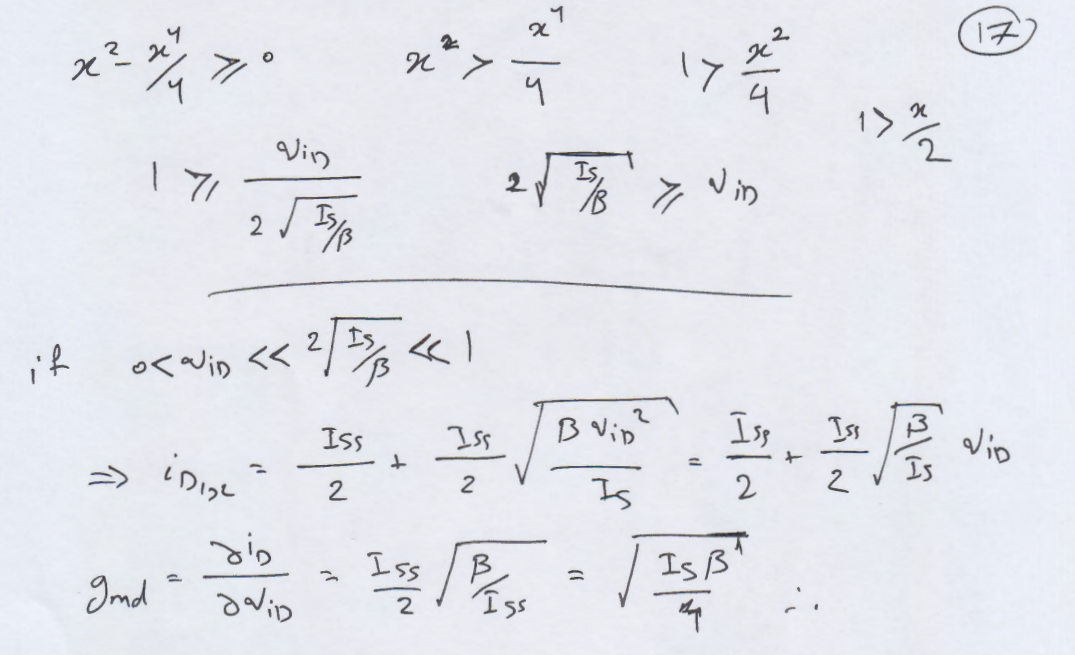 17
x² - x⁴/4 ⩾ 0    x² > x⁴/4    1 > x²/4    1 > x/2
1 ⩾ viD / (2√(Is/β))    2√(Is/β) ⩾ viD
if 0 < viD << 2√(Is/β) << 1
⇒ iD1,2 = Iss/2 + Iss/2 √(β viD²/Is) = Iss/2 + Iss/2 √(β/Is) viD
gmd = ∂iD/∂viD = Iss/2 √(β/Iss) = √(Is β/4) ∴